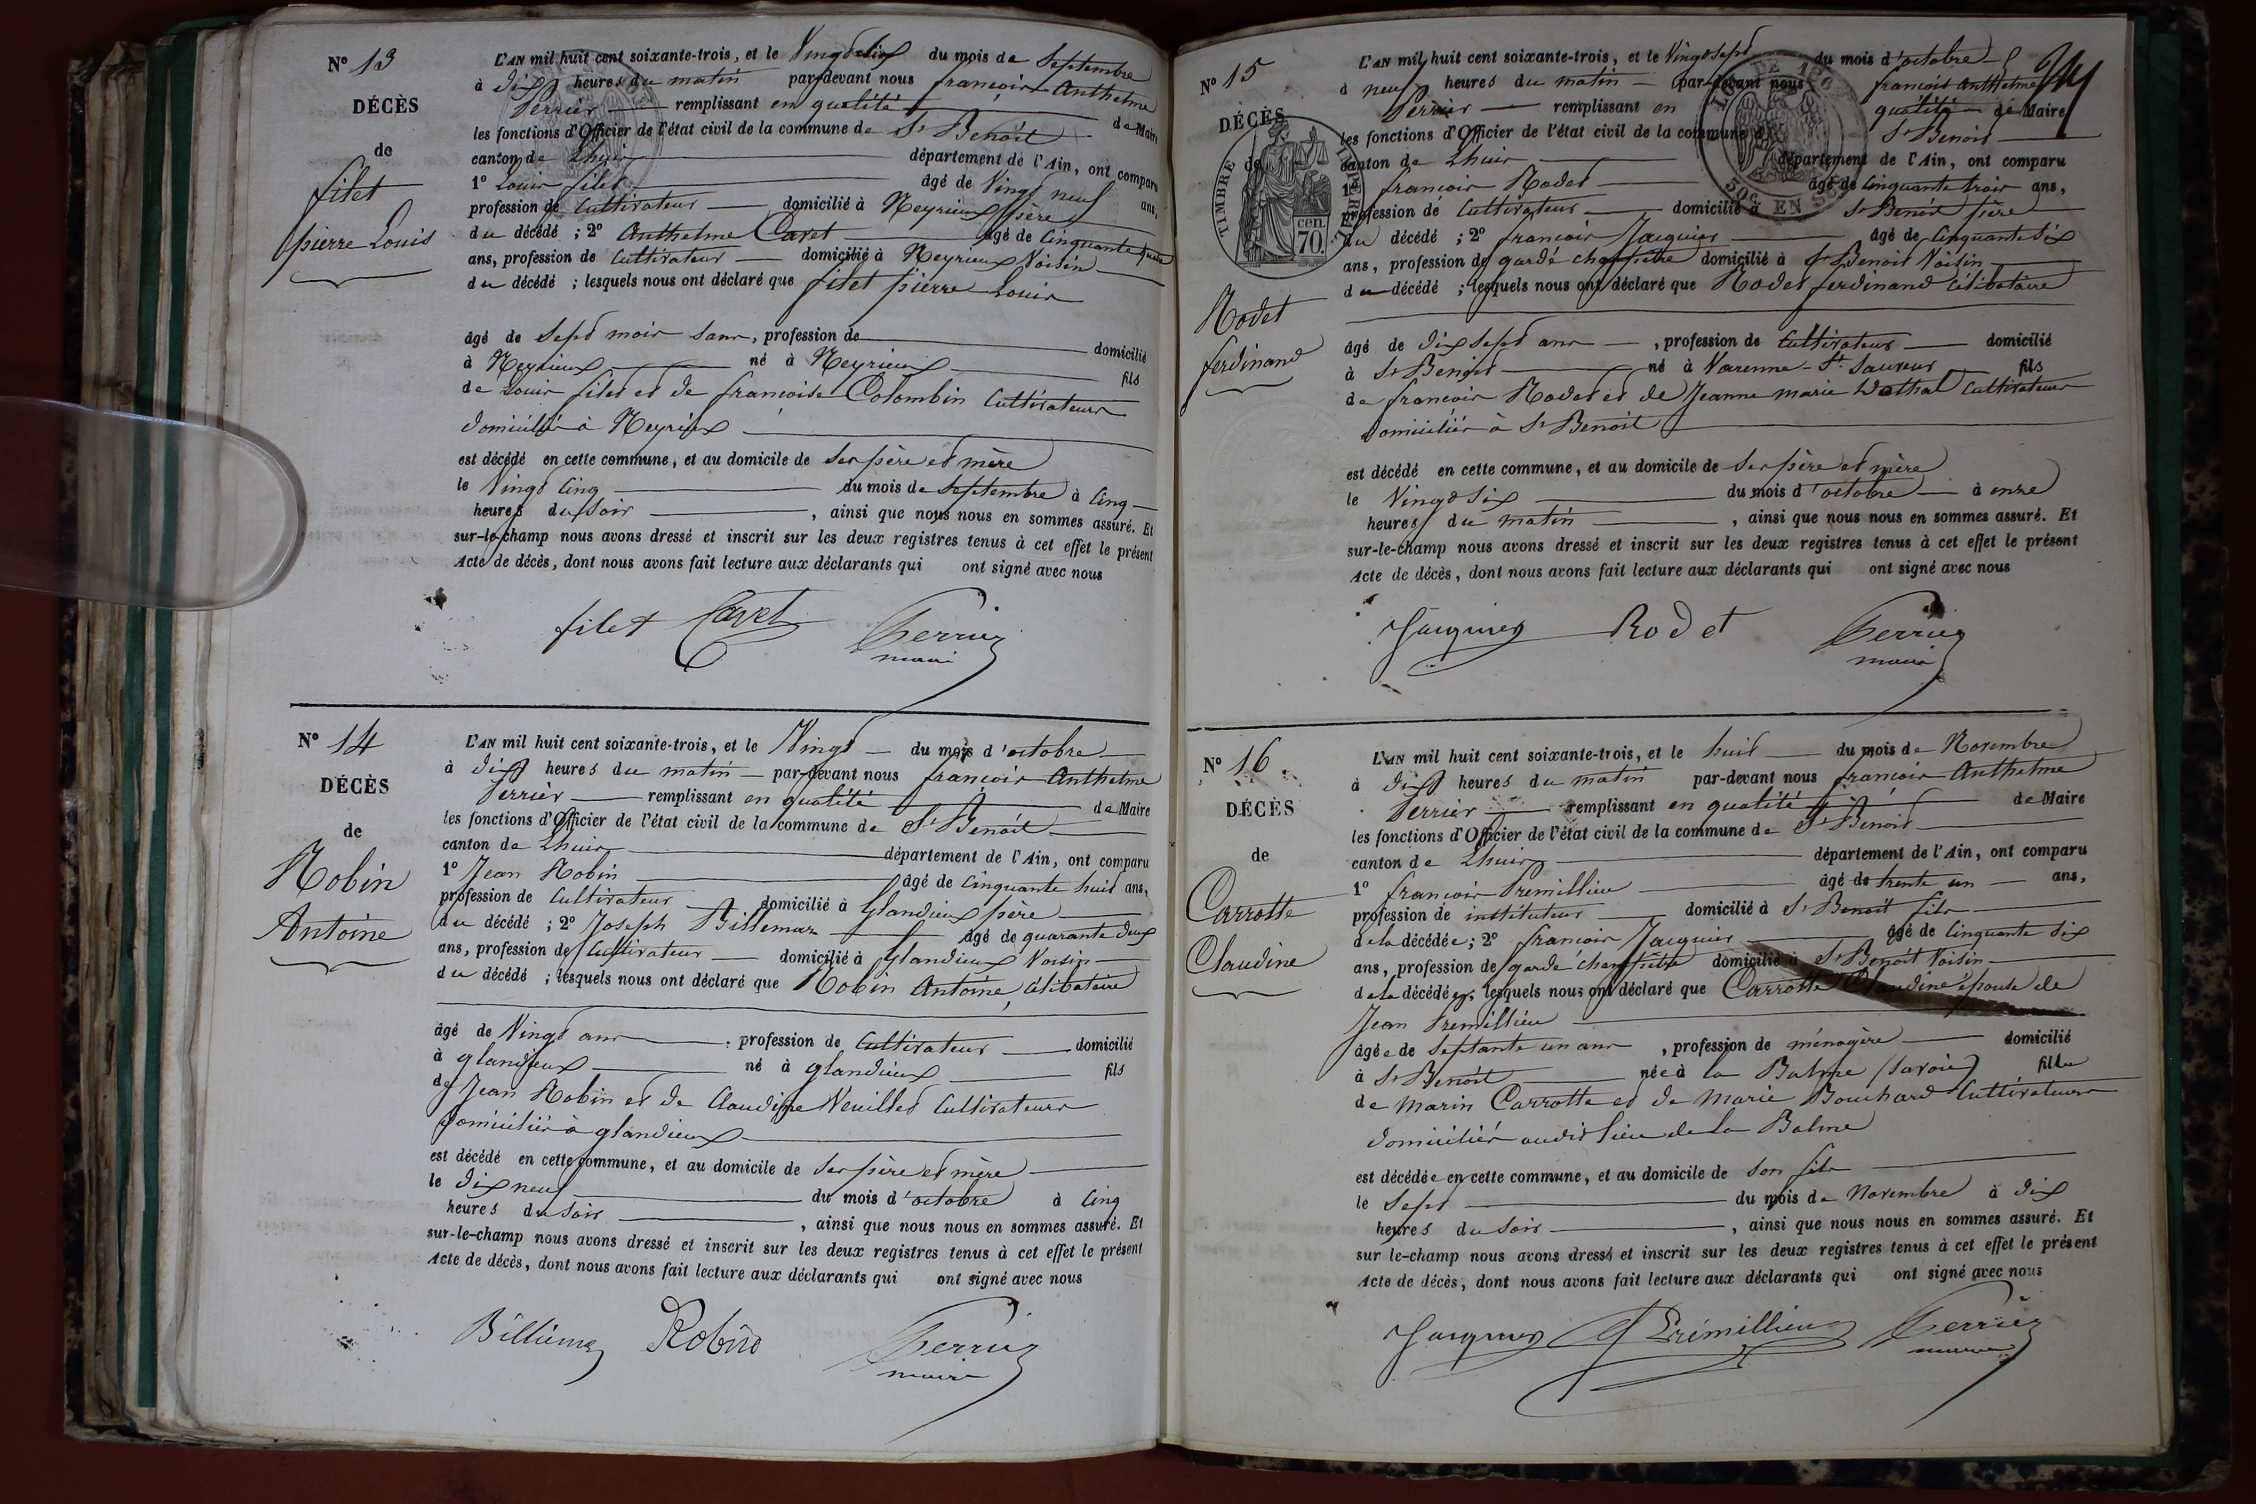 N° 13
DÉCÈS
de
filet
pierre Louis
L'AN mil huit cent soixante-trois, et le Vingt six du mois de Septembre
à dix heures du matin par-devant nous françois Anthelme
Perrier remplissant en qualité de Maire
les fonctions d'Officier de l'état civil de la commune de St Benoit
canton de Lhuis département de l'Ain, ont comparu
1° Louis filet âgé de Vingt neuf ans,
profession de Cultivateur domicilié à Neyrieux père
du décédé ; 2° Anthelme Cavet âgé de Cinquante quatre
ans, profession de Cultivateur domicilié à Neyrieux Voisin
du décédé ; lesquels nous ont déclaré que filet pierre Louis
âgé de Sept mois sans, profession de domicilié
à Neyrieux né à Neyrieux fils
de Louis filet et de françoise Colombin Cultivateurs
domiciliés à Neyrieux
est décédé en cette commune, et au domicile de Ses père et mère
le Vingt Cinq du mois de Septembre à Cinq
heures du soir , ainsi que nous nous en sommes assuré. Et
sur-le-champ nous avons dressé et inscrit sur les deux registres tenus à cet effet le présent
Acte de décès, dont nous avons fait lecture aux déclarants qui ont signé avec nous
filet Cavet Perrier
maire
N° 14
DÉCÈS
de
Robin
Antoine
L'AN mil huit cent soixante-trois, et le Vingt du mois d'octobre
à dix heures du matin par-devant nous françois Anthelme
Perrier remplissant en qualité de Maire
les fonctions d'Officier de l'état civil de la commune de St Benoit
canton de Lhuis département de l'Ain, ont comparu
1° Jean Robin âgé de Cinquante huit ans,
profession de Cultivateur domicilié à Glandieux père
du décédé ; 2° Joseph Billemaz âgé de quarante deux
ans, profession de Cultivateur domicilié à Glandieux Voisin
du décédé ; lesquels nous ont déclaré que Robin Antoine, Célibataire
âgé de Vingt ans , profession de Cultivateur domicilié
à glandieux né à glandieux fils
de Jean Robin et de Claudine Neuillet Cultivateurs
domiciliés à glandieux
est décédé en cette commune, et au domicile de Ses père et mère
le dix neuf du mois d'octobre à Cinq
heures du soir , ainsi que nous nous en sommes assuré. Et
sur-le-champ nous avons dressé et inscrit sur les deux registres tenus à cet effet le présent
Acte de décès, dont nous avons fait lecture aux déclarants qui ont signé avec nous
Billiemaz Robin Perrier
maire
N° 15
DÉCÈS
de
TIMBRE IMPERIAL
cen. 70
Rodet
ferdinand
L'AN mil huit cent soixante-trois, et le Vingt sept du mois d'octobre
à neuf heures du matin par-devant nous françois Anthelme
Perrier remplissant en qualité de Maire
les fonctions d'Officier de l'état civil de la commune de St Benoit
canton de Lhuis département de l'Ain, ont comparu
50c EN SUS
1° françois Rodet âgé de Cinquante trois ans,
profession de Cultivateur domicilié à St Benoit père
du décédé ; 2° françois Jacquier âgé de Cinquante Six
ans, profession de garde champêtre domicilié à St Benoit Voisin
du décédé ; lesquels nous ont déclaré que Rodet ferdinand Célibataire
âgé de dix sept ans , profession de Cultivateur domicilié
à St Benoit né à Varenne-St Sauveur fils
de françois Rodet et de Jeanne marie Wathal Cultivateurs
domiciliés à St Benoit
est décédé en cette commune, et au domicile de Ses père et mère
le Vingt Six du mois d'octobre à onze
heures du matin , ainsi que nous nous en sommes assuré. Et
sur-le-champ nous avons dressé et inscrit sur les deux registres tenus à cet effet le présent
Acte de décès, dont nous avons fait lecture aux déclarants qui ont signé avec nous
Jacquier Rodet Perrier
maire
N° 16
DÉCÈS
de
Carrotte
Claudine
L'AN mil huit cent soixante-trois, et le huit du mois de Novembre
à dix heures du matin par-devant nous françois Anthelme
Perrier remplissant en qualité de Maire
les fonctions d'Officier de l'état civil de la commune de St Benoit
canton de Lhuis département de l'Ain, ont comparu
1° françois Premillieu âgé de trente un ans,
profession de instituteur domicilié à St Benoit fils
de la décédée ; 2° françois Jacquier âgé de Cinquante Six
ans, profession de garde champêtre domicilié à St Benoit Voisin
de la décédée, lesquels nous ont déclaré que Carrotte Claudine épouse de
Jean Premillieu
âgée de Septante un ans , profession de ménagère domicilié
à St Benoit née à la Balme (Savoie) fille
de Marin Carrotte et de Marie Bouchard Cultivateurs
domiciliés audit lieu de la Balme
est décédée en cette commune, et au domicile de son fils
le Sept du mois de Novembre à dix
heures du soir , ainsi que nous nous en sommes assuré. Et
sur le-champ nous avons dressé et inscrit sur les deux registres tenus à cet effet le présent
Acte de décès, dont nous avons fait lecture aux déclarants qui ont signé avec nous
Jacquier Prémillieu Perrier
maire